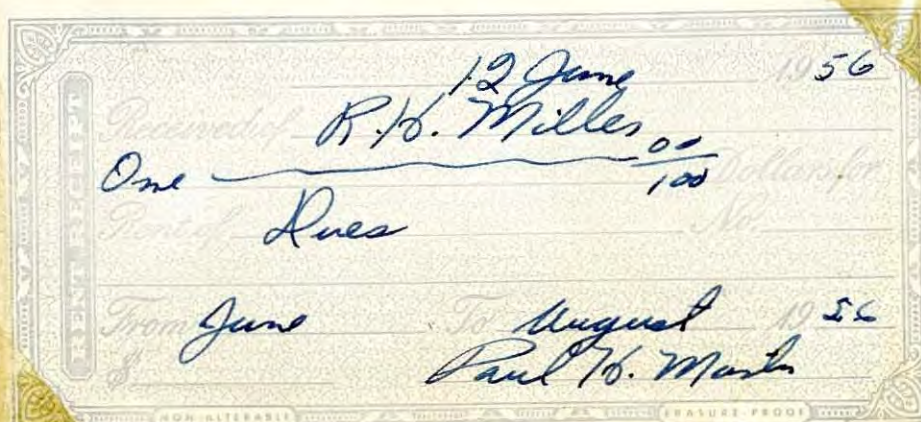 12 June 1956
Received of R. H. Miller
One 00/100 Dollars for
Rent of Dues
From June To August 1956
$ Paul H.
RENT RECEIPT
NON-ALTERABLE ERASURE-PROOF